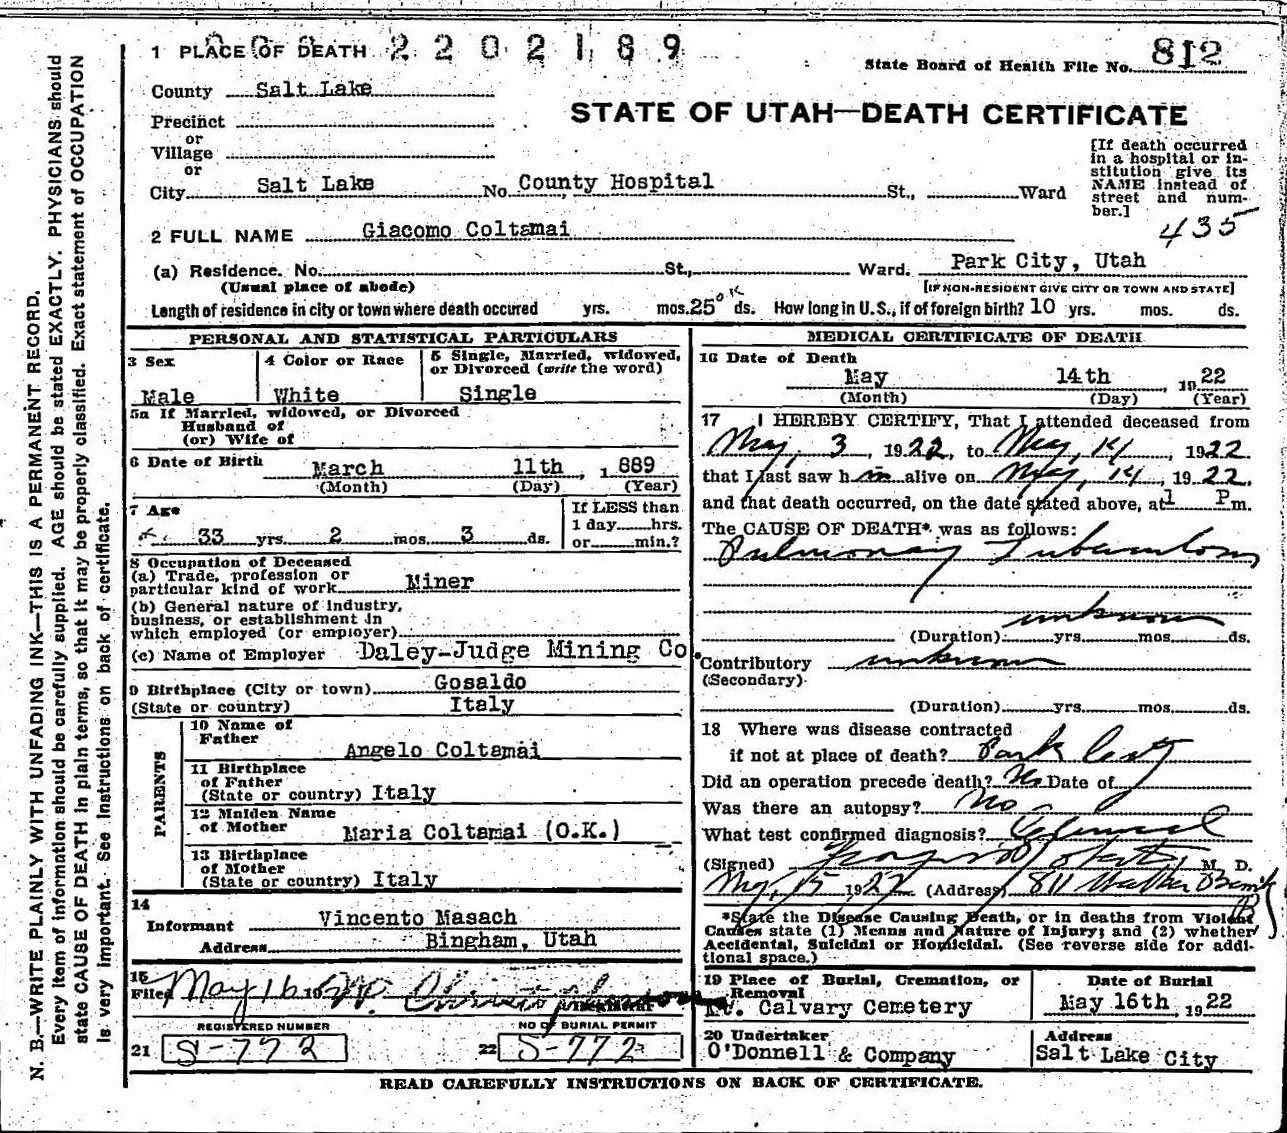 1 PLACE OF DEATH 2202189
State Board of Health File No. 812
County Salt Lake
STATE OF UTAH—DEATH CERTIFICATE
Precinct
or
Village
or
City Salt Lake No. County Hospital St., Ward
[If death occurred
in a hospital or in-
stitution give its
NAME instead of
street and num-
ber.]
435
2 FULL NAME Giacomo Coltamai
(a) Residence. No. St., Ward. Park City, Utah
(Usual place of abode) [IF NON-RESIDENT GIVE CITY OR TOWN AND STATE]
Length of residence in city or town where death occured yrs. mos. 25 ds. How long in U.S., if of foreign birth? 10 yrs. mos. ds.
PERSONAL AND STATISTICAL PARTICULARS
3 Sex
Male
4 Color or Race
White
5 Single, Married, widowed,
or Divorced (write the word)
Single
5a If Married, widowed, or Divorced
Husband of
(or) Wife of
6 Date of Birth March 11th, 1889
(Month) (Day) (Year)
7 Age
33 yrs. 2 mos. 3 ds.
If LESS than
1 day hrs.
or min.?
8 Occupation of Deceased
(a) Trade, profession or
particular kind of work Miner
(b) General nature of industry,
business, or establishment in
which employed (or employer)
(c) Name of Employer Daley-Judge Mining Co.
9 Birthplace (City or town) Gosaldo
(State or country) Italy
PARENTS
10 Name of
Father Angelo Coltamai
11 Birthplace
of Father
(State or country) Italy
12 Maiden Name
of Mother Maria Coltamai (O.K.)
13 Birthplace
of Mother
(State or country) Italy
14
Informant Vincento Masach
Address Bingham, Utah
15
Filed May 16 19
REGISTERED NUMBER
21 S-772
NO OF BURIAL PERMIT
22 S-772
MEDICAL CERTIFICATE OF DEATH
16 Date of Death
May 14th, 1922
(Month) (Day) (Year)
17 I HEREBY CERTIFY, That I attended deceased from
May, 3, 1922, to May, 14, 1922
that I last saw him alive on May, 14, 1922.
and that death occurred, on the date stated above, at 1 P m.
The CAUSE OF DEATH* was as follows:
Pulmonary Tuberculosis
unknown
(Duration) yrs. mos. ds.
Contributory unknown
(Secondary)
(Duration) yrs. mos. ds.
18 Where was disease contracted
if not at place of death? Park City
Did an operation precede death? No Date of
Was there an autopsy? No
What test confirmed diagnosis? Clinical
(Signed) M. D.
May, 15 1922 (Address) 811 Walker Bank
*State the Disease Causing Death, or in deaths from Violent
Causes state (1) Means and Nature of Injury; and (2) whether
Accidental, Suicidal or Homicidal. (See reverse side for addi-
tional space.)
19 Place of Burial, Cremation, or
Removal
Mt. Calvary Cemetery
Date of Burial
May 16th, 1922
20 Undertaker
O'Donnell & Company
Address
Salt Lake City
READ CAREFULLY INSTRUCTIONS ON BACK OF CERTIFICATE.
N. B.—WRITE PLAINLY WITH UNFADING INK—THIS IS A PERMANENT RECORD.
Every item of information should be carefully supplied. AGE should be stated EXACTLY. PHYSICIANS should
state CAUSE OF DEATH in plain terms, so that it may be properly classified. Exact statement of OCCUPATION
is very important. See instructions on back of certificate.